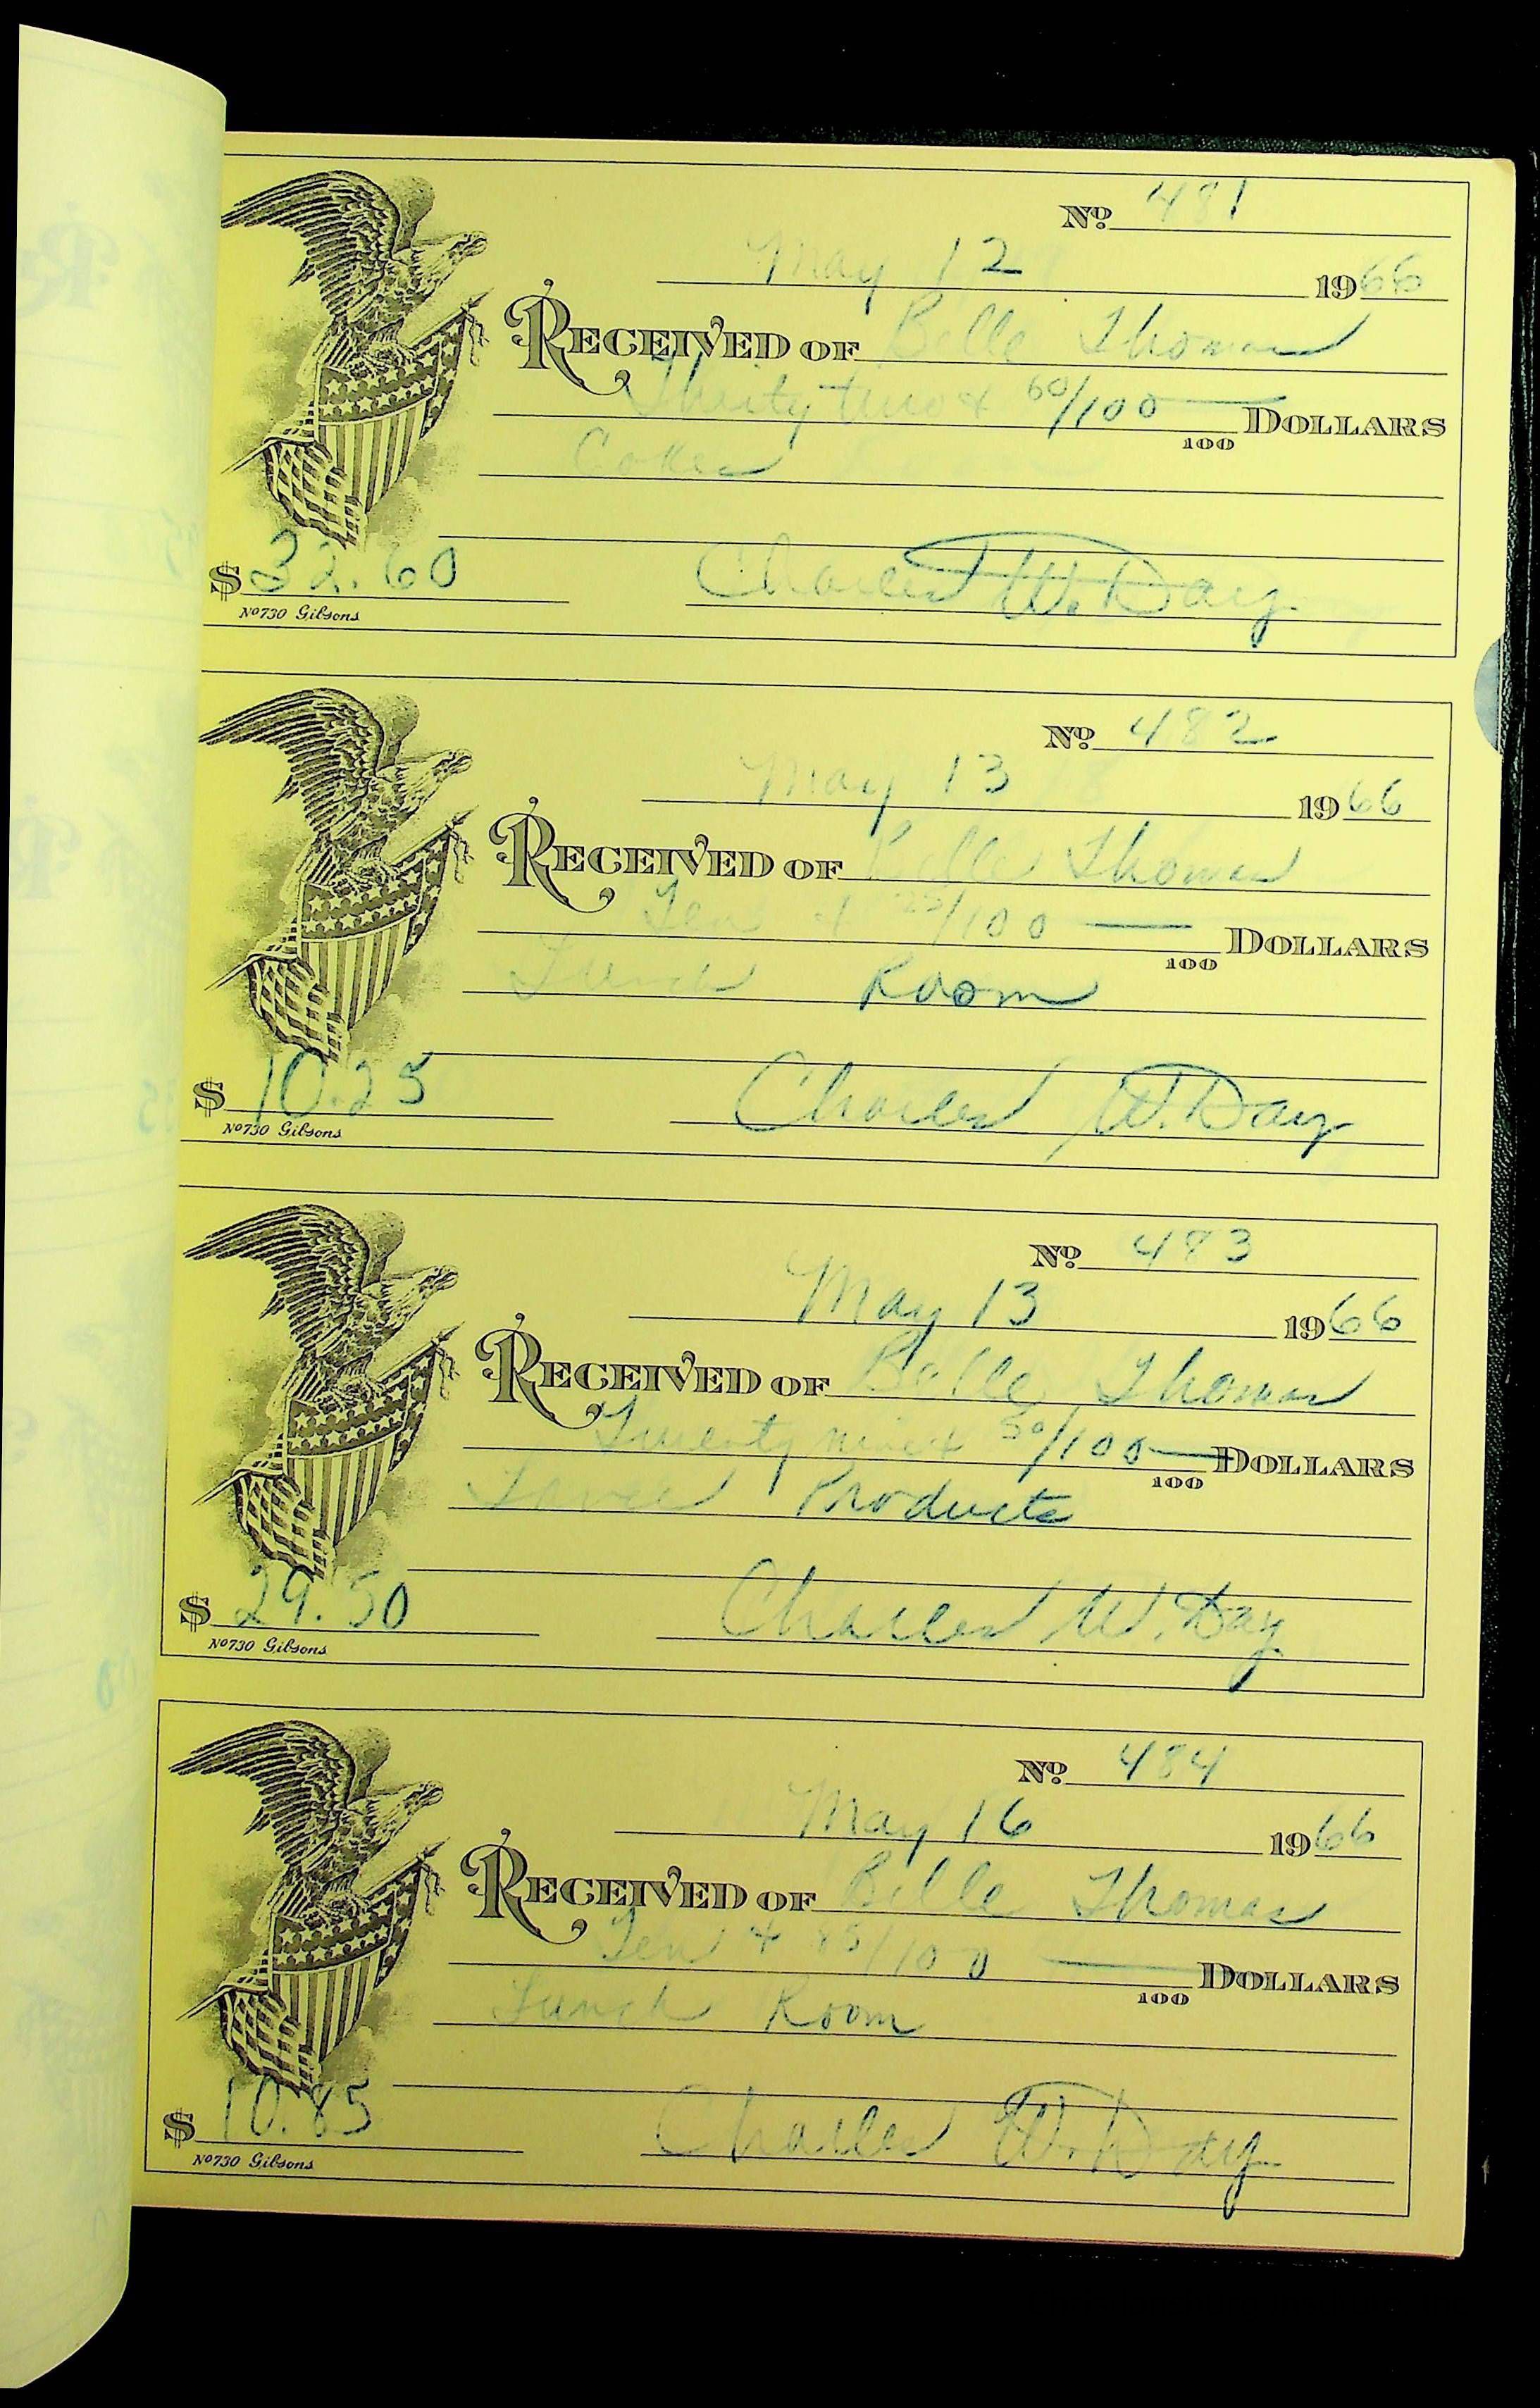 No. 481
May 12 1966
RECEIVED OF Belle Thomas
Thirty two & 60/100 DOLLARS
100
Cokes
$ 32.60 Charles W. Day
No 730 Gibsons
No. 482
May 13 1966
RECEIVED OF Belle Thomas
Ten & 25/100 DOLLARS
100
Lunch Room
$ 10.25 Charles W. Day
No 730 Gibsons
No. 483
May 13 1966
RECEIVED OF Belle Thomas
Twenty nine & 50/100 DOLLARS
100
Products
$ 29.50 Charles W. Day
No 730 Gibsons
No. 484
May 16 1966
RECEIVED OF Belle Thomas
Ten & 85/100 DOLLARS
100
Lunch Room
$ 10.85 Charles W. Day
No 730 Gibsons